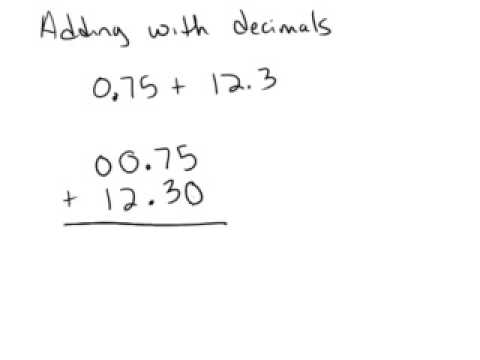 Adding with decimals
0.75 + 12.3
00.75
+ 12.30